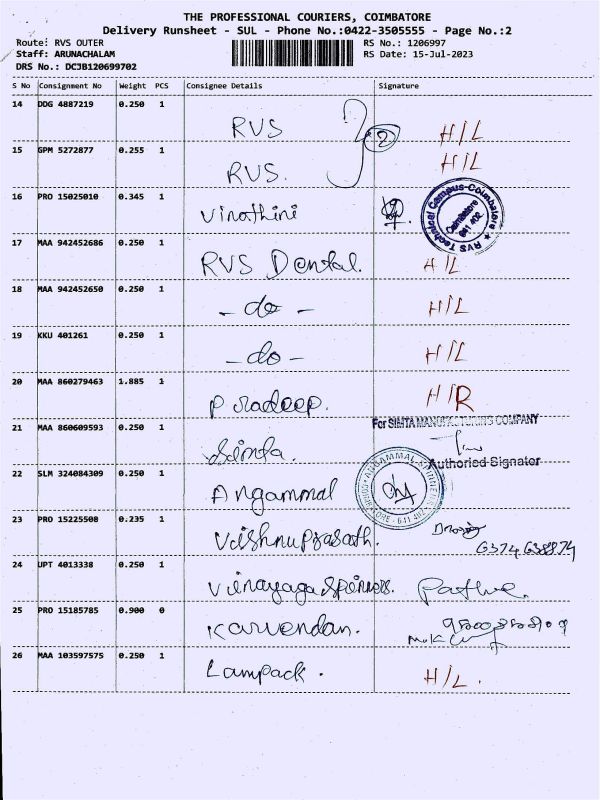 THE PROFESSIONAL COURIERS, COIMBATORE
Delivery Runsheet - SUL - Phone No.:0422-3505555 - Page No.:2
Route: RVS OUTER RS No.: 1206997
Staff: ARUNACHALAM RS Date: 15-Jul-2023
DRS No.: DCJB120699702
S No Consignment No Weight PCS Consignee Details Signature
14 DDG 4887219 0.250 1 RVS 2 H/L
15 GPM 5272877 0.255 1 RVS. H/L
16 PRO 15025010 0.345 1 Vinothini RVS Technical Campus-Coimbatore Coimbatore 641 402
17 MAA 942452686 0.250 1 RVS Dental. H/L
18 MAA 942452650 0.250 1 - do - H/L
19 KKU 401261 0.250 1 - do - H/L
20 MAA 860279463 1.885 1 Pradeep. H/R
21 MAA 860609593 0.250 1 Simta. For SIMTA MANUFACTURING COMPANY
Authoried Signator
22 SLM 324084309 0.250 1 Angammal ANGAMMAL 641 402
23 PRO 15225508 0.235 1 Vishnu Prasath.
24 UPT 4013338 0.250 1 Vinayaga Spinners.
25 PRO 15185785 0.900 0 Karvendan.
26 MAA 103597575 0.250 1 Lampack. H/L.